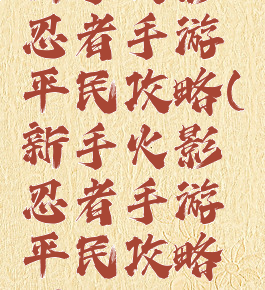 忍者手游
平民攻略(
新手火影
忍者手游
平民攻略